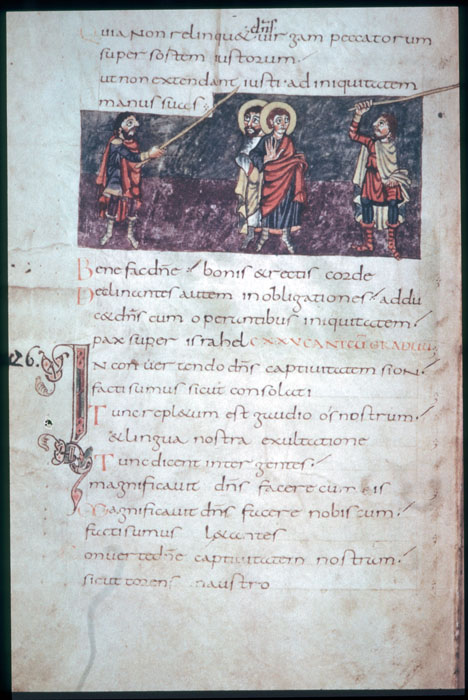 dn̄s
Quia Non relinquet uirgam peccatorum
super sortem iustorum·
ut non extendant iusti· ad iniquitatem
manus suas·
Benefac dn̄e bonis & rectis corde
Declinantes autem in obligationes adducet dn̄s cum operantibus iniquitatem·
pax super israhel CXXV CANTICU GRADUU
126. IN conuertendo dn̄s captiuitatem sion
facti sumus sicut consolati
Tunc repl&um est gaudio os nostrum·
& lingua nostra exultatione
Tunc dicent inter gentes·
magnificauit dn̄s facere cum eis
Magnificauit dn̄s facere nobiscum·
facti sumus l&antes
onuerte dn̄e captiuitatem nostram·
sicut torens in austro